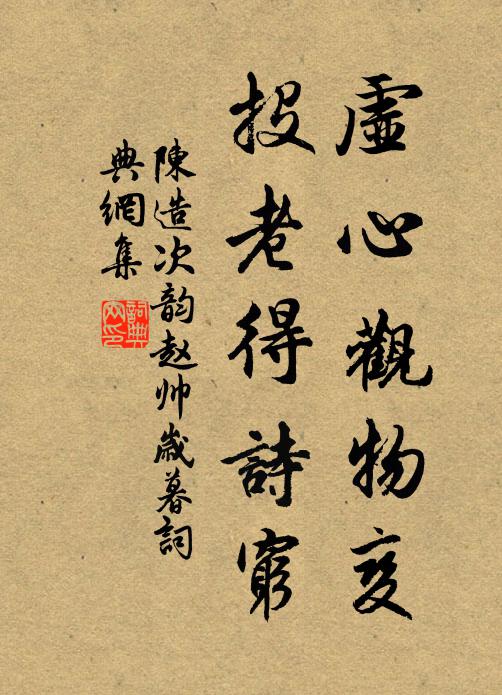 虛心觀物变
投老得詩窮
陳造次韵赵帅歲暮詞
典網集
詞典
网印